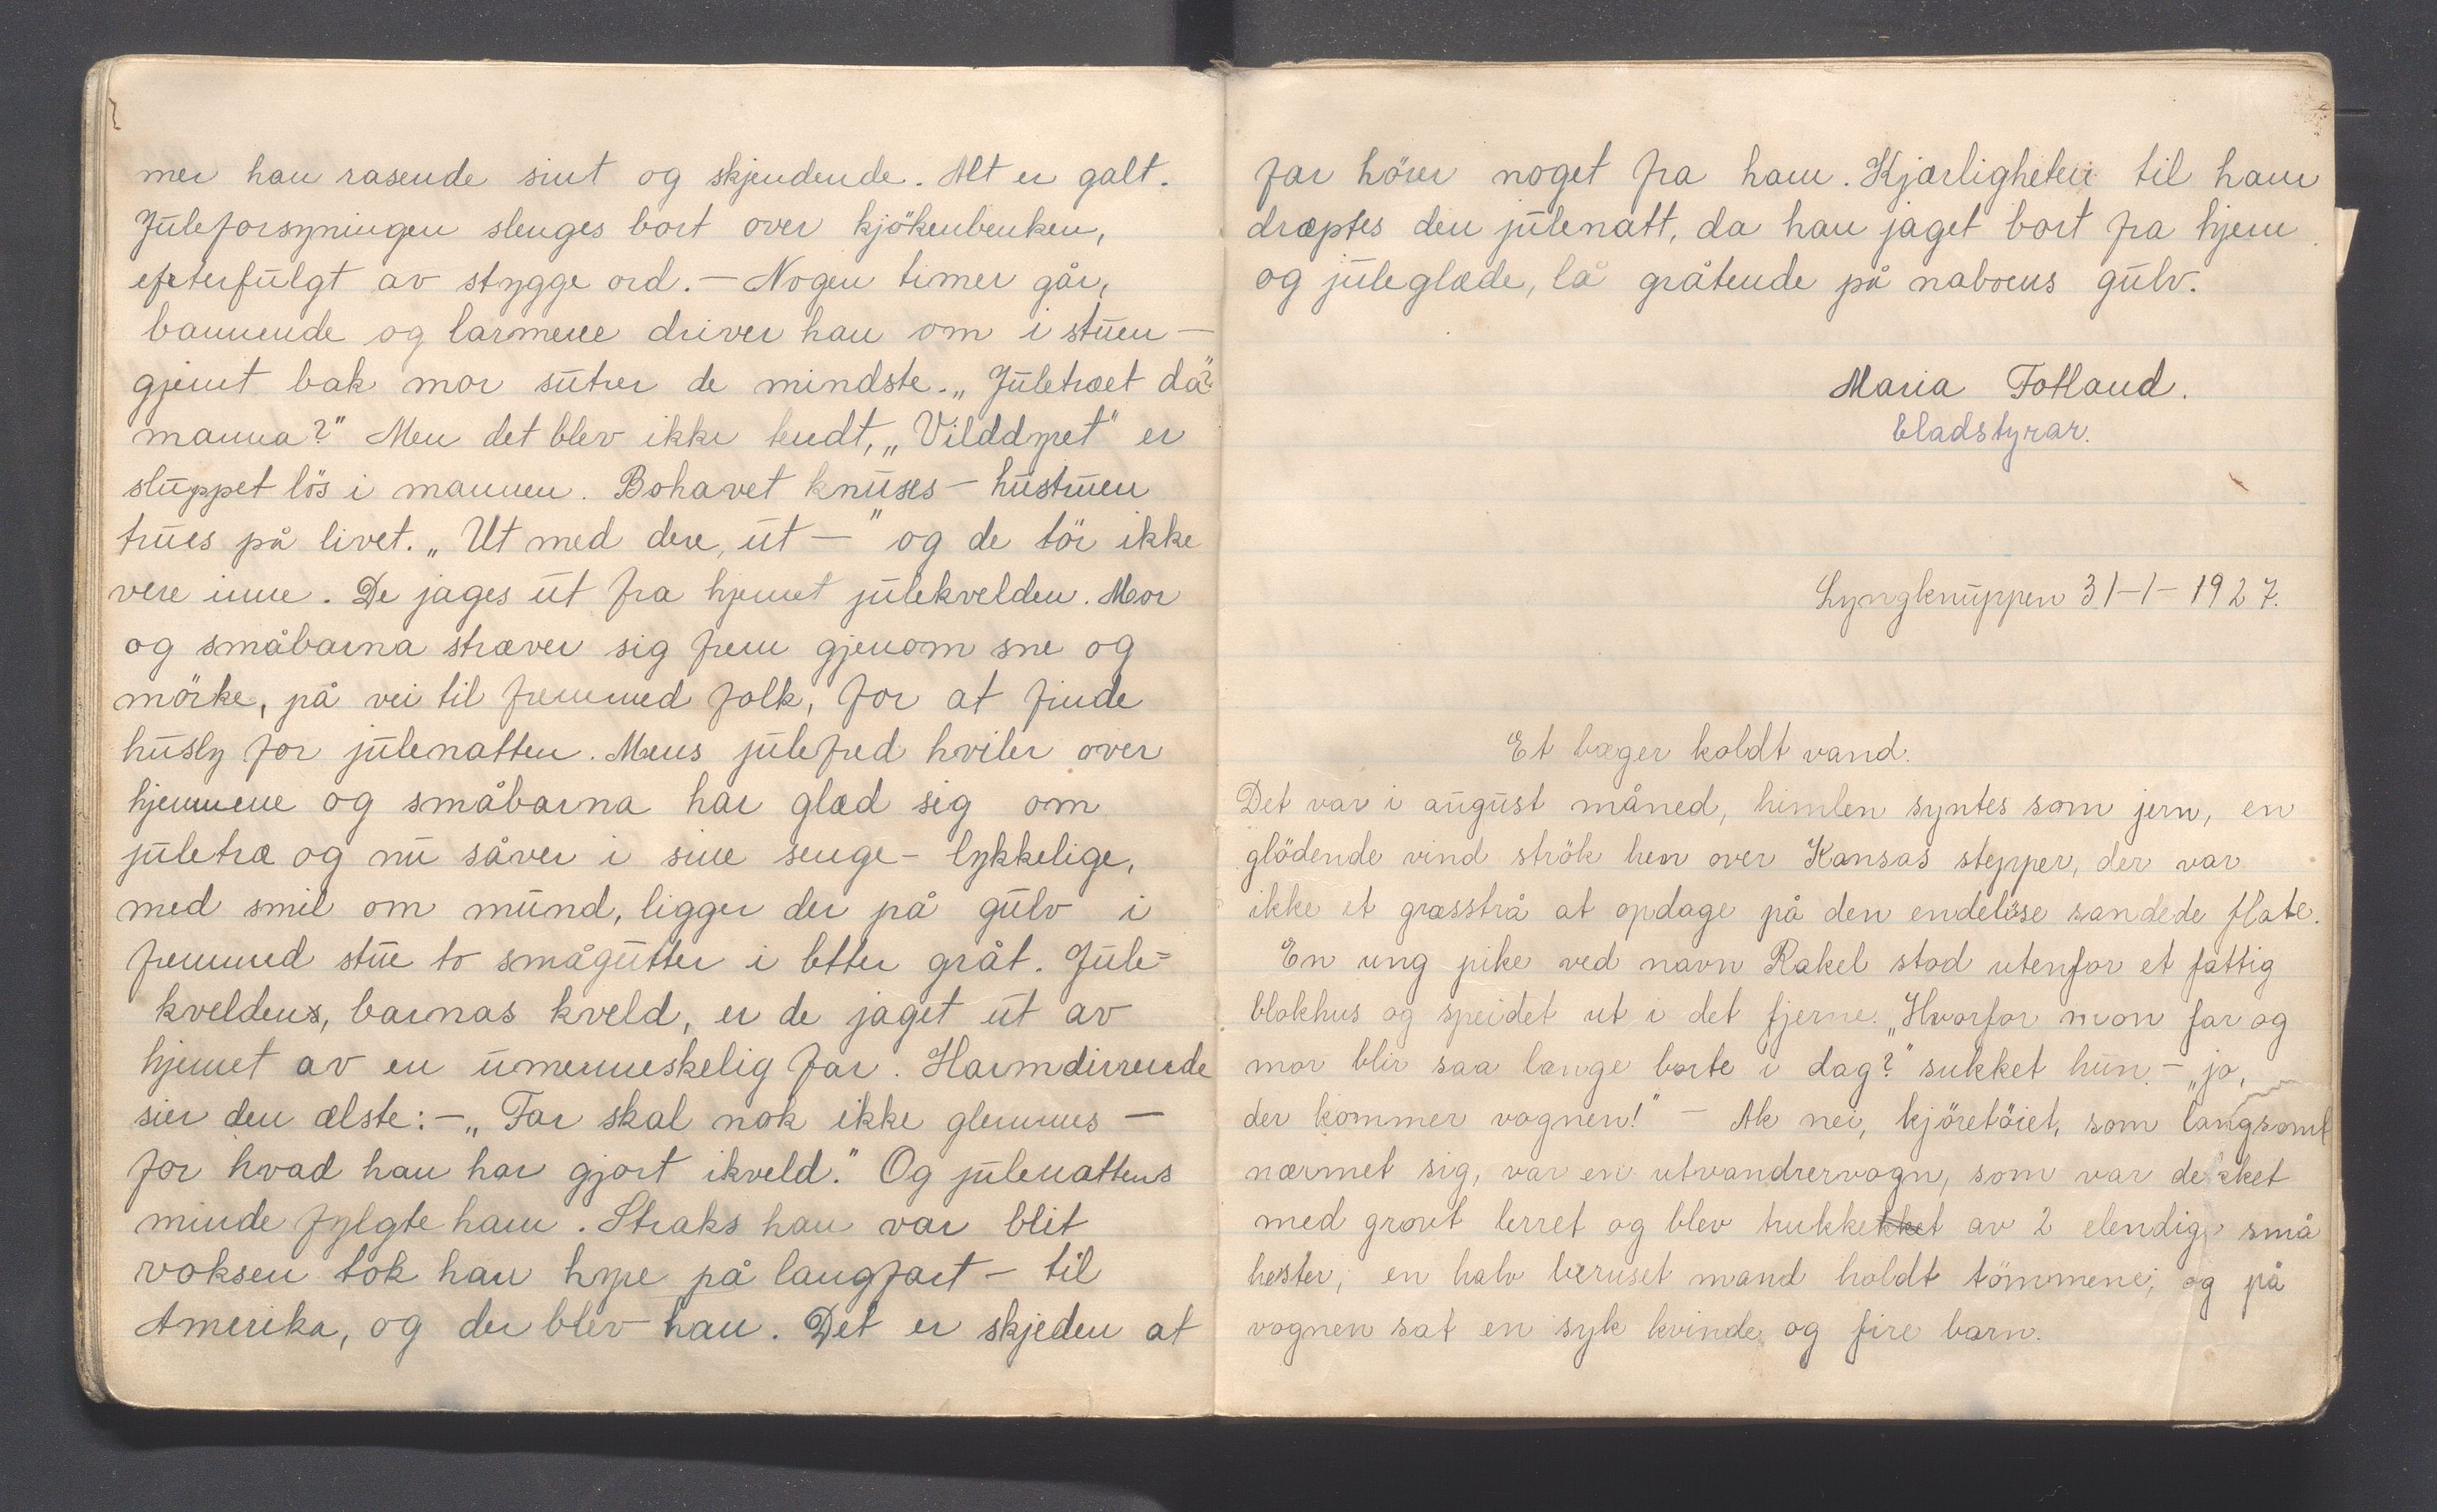 mer han rasende sint og skjendende. Alt er galt.
Juleforsyningen slenges bort over kjökenbenken,
efterfulgt av stygge ord. — Nogen timer går,
bannende og larmene driver han om i stuen —
gjemt bak mor sutrer de mindste. „Juletræet da?
mamma?" Men det blev ikke tendt, „Vilddyret" er
sluppet lös i mannen. Bohavet knuses — hustruen
trues på livet. „Ut med dere, ut —" og de tör ikke
vere inne. De jages ut fra hjemet julekvelden. Mor
og småbarna stræver sig frem gjenom sne og
mörke, på vei til fremmed folk, for at finde
husly for julenatten. Mens julefred hviler over
hjemmene og småbarna har glæd sig om
juletræ og nu såver i sine senge — lykkelige,
med smil om mund, ligger der på gulv i
fremmed stue to smågutter i bitter gråt. Jule=
kveldens, barnas kveld, er de jaget ut av
hjemet av en umenneskelig far. Harmdirrende
sier den ælste: — „Far skal nok ikke glemmes —
for hvad han har gjort ikveld." Og julenattens
minde fylgte ham. Straks han var blit
voksen tok han hyre på langfart — til
Amerika, og der blev han. Det er skjeden at
far hörer noget fra ham. Kjærligheten til ham
dræptes den julenatt, da han jaget bort fra hjem
og juleglæde, lå gråtende på naboens gulv.
Maria Fotland.
bladstyrar.
Lyngknuppen 31-1-1927.
Et bæger koldt vand.
Det var i august måned, himlen syntes som jern, en
glödende vind strök hen over Kansas stepper, der var
ikke et græsstrå at opdage på den endelöse sandede flate.
En ung pike ved navn Rakel stod utenfor et fattig
blokhus og speidet ut i det fjerne. „Hvorfor mon far og
mor blir saa længe borte i dag?" sukket hun — „jo,
der kommer vognen!" — Ak nei, kjöretöiet, som langsomt
nærmet sig, var en utvandrervogn, som var dekket
med grovt lerret og blev trukketket av 2 elendige små
hester; en halv beruset mand holdt tömmene; og på
vognen sat en syk kvinde og fire barn.